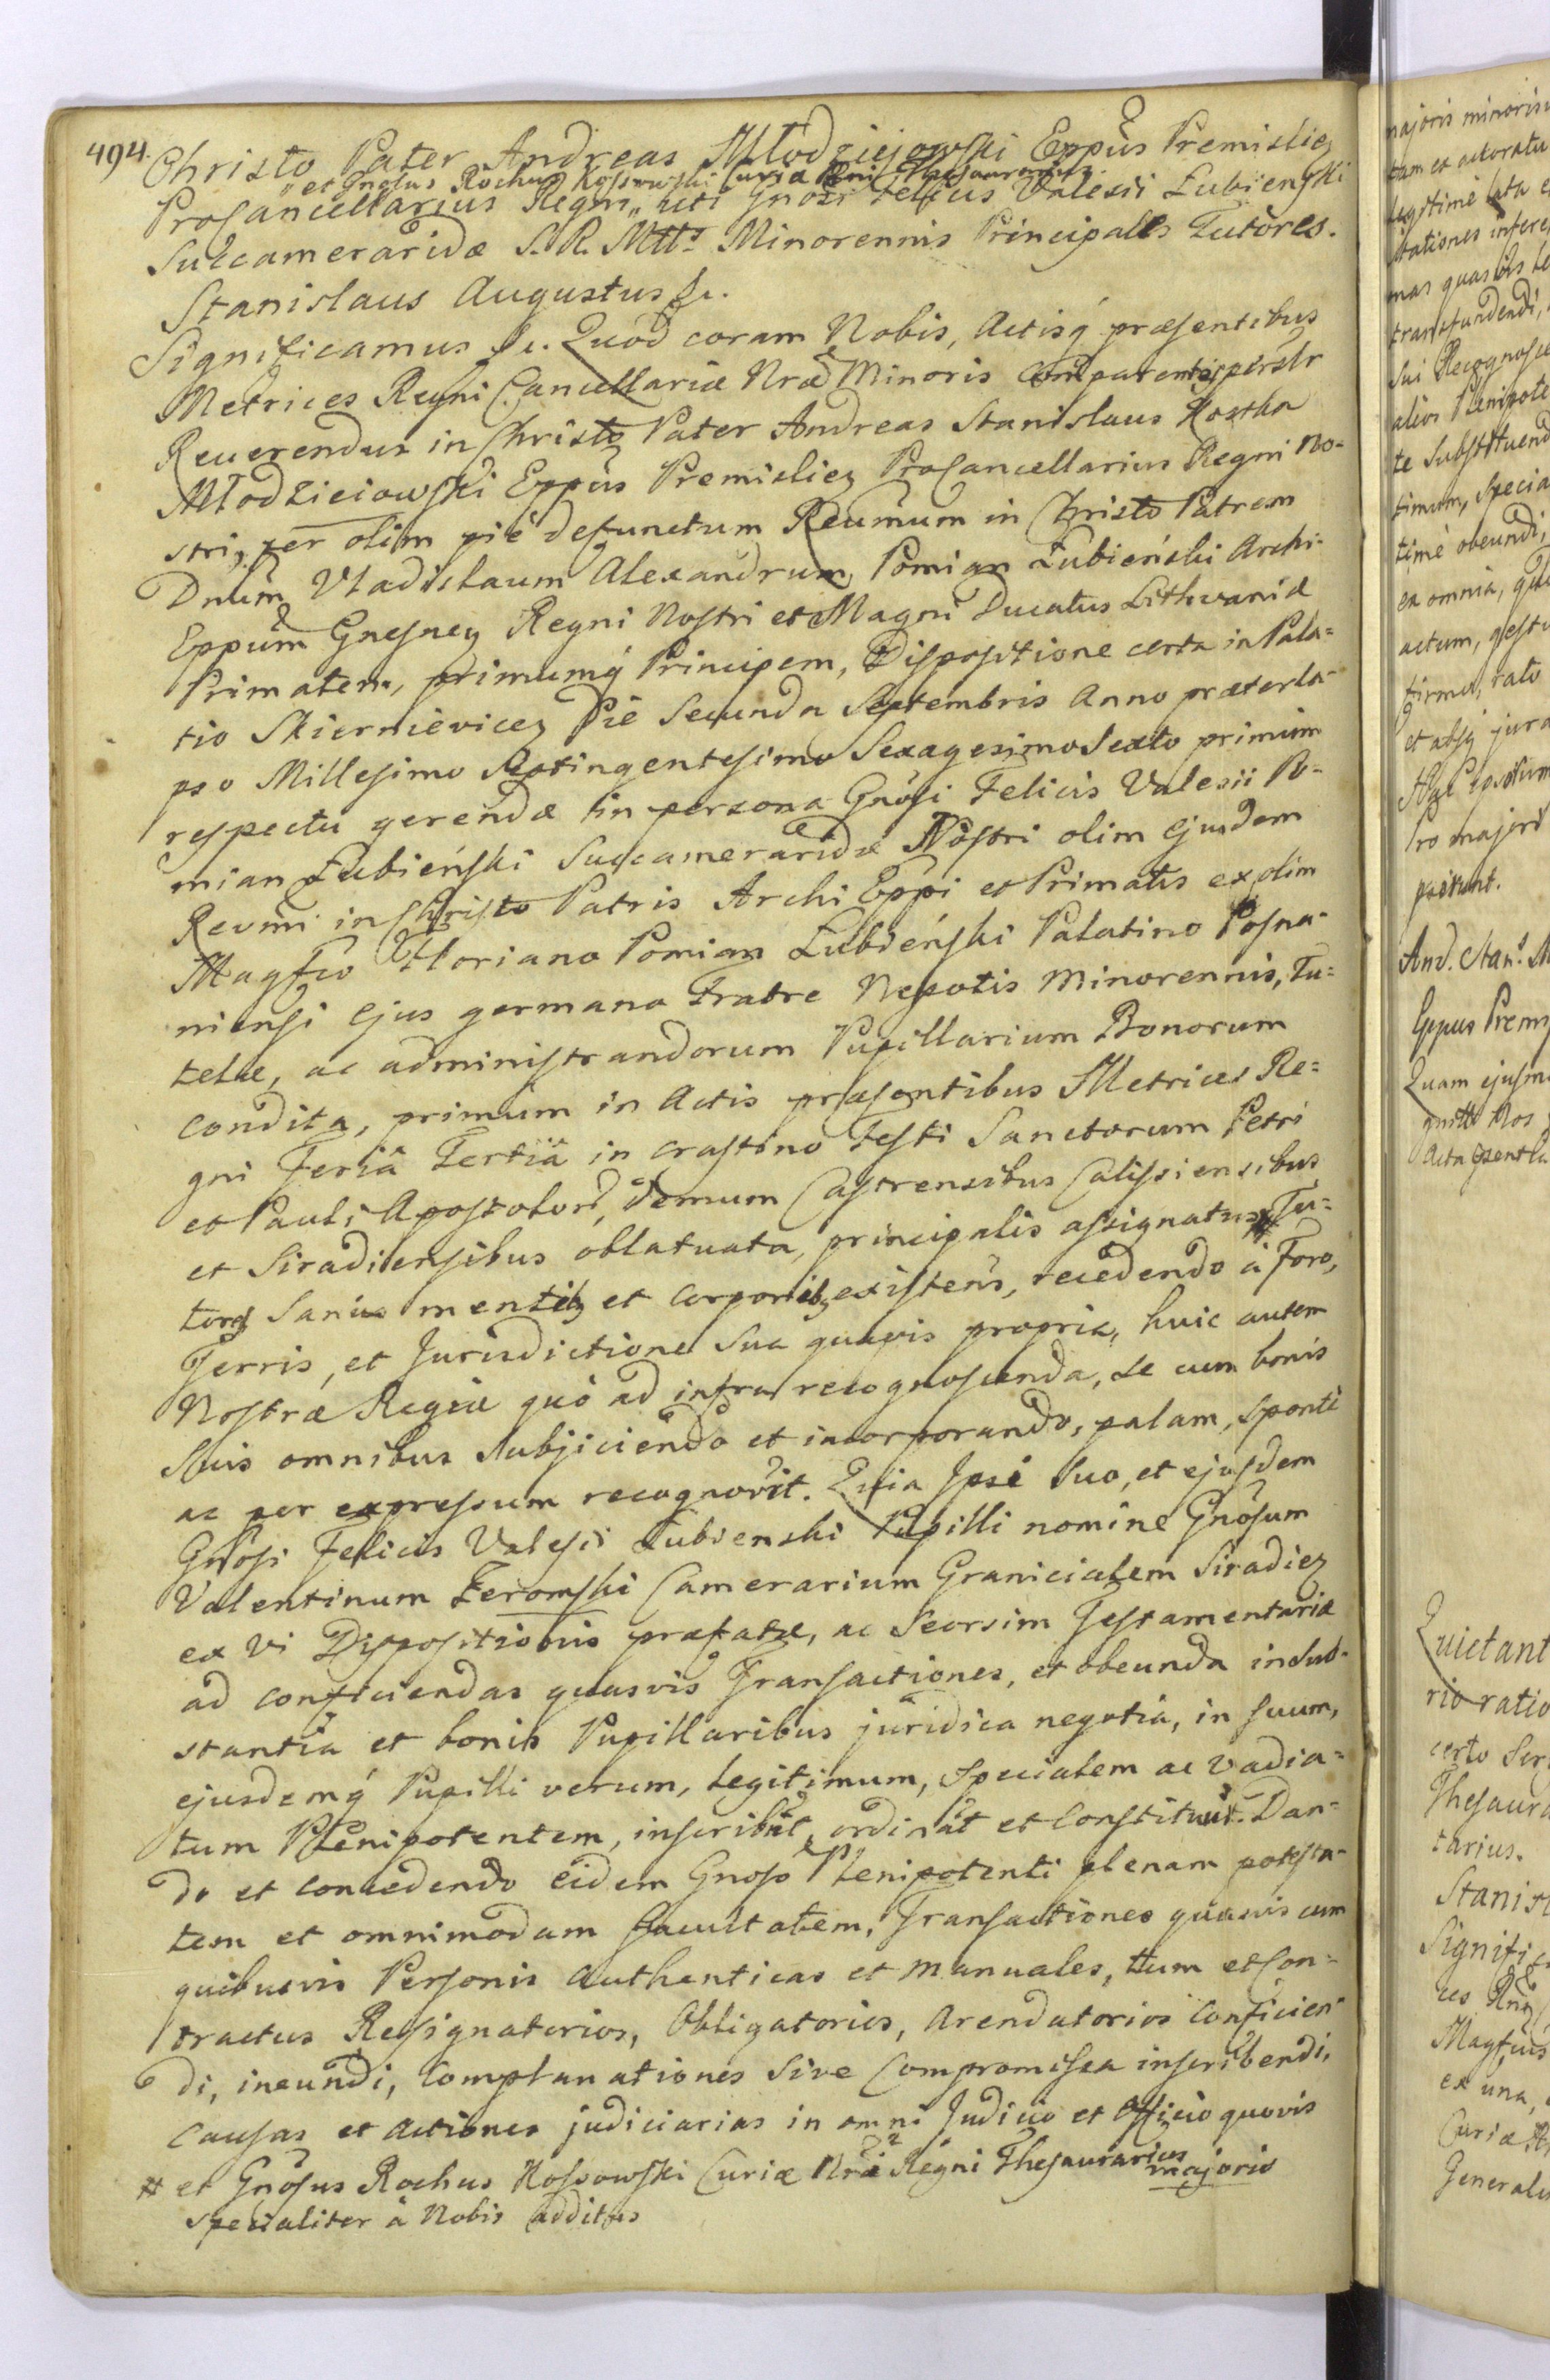 494.
Christo Pater Andreas Młodziejowski Eppus Premisliez
„et Gnosus Rochus Kossowski Curiæ Regni Thesaurarius
Procancellarius Regni „ uti Gnosi Felicis Valesii Łubienski
Succameraridæ S. R. Mttis Minorennis Principales Tutores.
Stanislaus Augustus &c.
Significamus &c. Quod coram Nobis, Actisq́ præsentibus
Metrices Regni Cancellariæ Nræ Minoris comparentes personlr
Reuerendus in Christo Pater Andreas Stanislaus Kostka
Młodzieiowski Eppus Premisliez Procancellarius Regni No-
stri, per olim piè defunctum Reumum in Christo Patrem
Dnum Vladislaum Alexandrum Pomian Łubieński Archi-
Eppum Gnesnez Regni Nostri et Magni Ducatus Lithvaniæ
Primatem, primumq́ Principem, Dispositione certa in Pala=
tio Skiernievicez Die Secunda Septembris Anno præterla-
pso Millesimo Septingentesimo Sexagesimo Sexto primum
respectu gerendæ in persona Gnosi Felicis Valesii Po-
mian Łubieński Succameraridæ Nostri olim Ejusdem
Reumi in Christo Patris Archi Eppi et Primatis ex olim
Magfco Floriano Pomian Łubieński Palatino Posna-
niensi Ejus germano Fratre Nepotis Minorennis, Tu=
telæ, ac administrandorum Pupillarium Bonorum
condita, primum in Actis præsentibus Metrices Re=
gni Feriâ Tertiâ in crastino Festi Sanctorum Petri
et Pauli Apostolor, demum Castrensibus Calissiensibus
et Siradiensibus oblatuata, principalis assignatus # Tu=
tores Sanis mentibz et corporibz existens, recedendo à Foro,
Terris, et Jurisdictione sua quavis propria, huic autem
Nostræ Regiæ quò ad infra recognoscenda, se cum bonis
Suis omnibus subjiciendo et incorporando, palam, spontè
ac per expressum recognovit. Quia Ipse suo, et ejusdem
Gnosi Felicis Valesii Łubienski Pupilli nomine Gnosum
Valentinum Żeromski Camerarium Granicialem Siradiez
ex vi Dispositionis præfatæ, ac Seorsim Testamentariæ
ad conficiendas quasvis Transactiones, et obeunda in sub-
stantia et bonis Pupillaribus juridica negotia, in suum,
ejusdemq́ Pupilli verum, legitimum, specialem ac vadia=
tum Plenipotentem, inscribit, ordinat et constituit. Dan=
do et concedendo eidem Gnoso Plenipotenti plenam potesta-
tem et omnimodam facultatem, Transactiones quasvis cum
quibusvis Personis authenticas et manuales, tum et Con=
tractus Resignatorios, Obligatorios, Arendatorios conficien-
di, ineundi, Complanationes sive Compromissa inscribendi,
Causas et actiones judiciarias in omni Judicio et Officio quovis
majoris
# et Gnosus Rochus Kossowski Curiæ Nræ Regni Thesaurarius
specialiter à Nobis additus
majoris minoris
tam et actoratu
legitimè lata
mas quasvis
transfundendi,
Sui Recognosce
alios Plenipote
te Substituend
timum, specia
timè obeundi,
ea omnia, quæ
actum, gestu
firmu, rato
et absq́ jura
Pro majori
And. Stan. M
Eppus Premi
Quam ejusm
Quietant
rio ratio
certo
Thesaura
tarius.
Stanisl
Signific
Magfcus
ex una,
Curiæ
Generalis